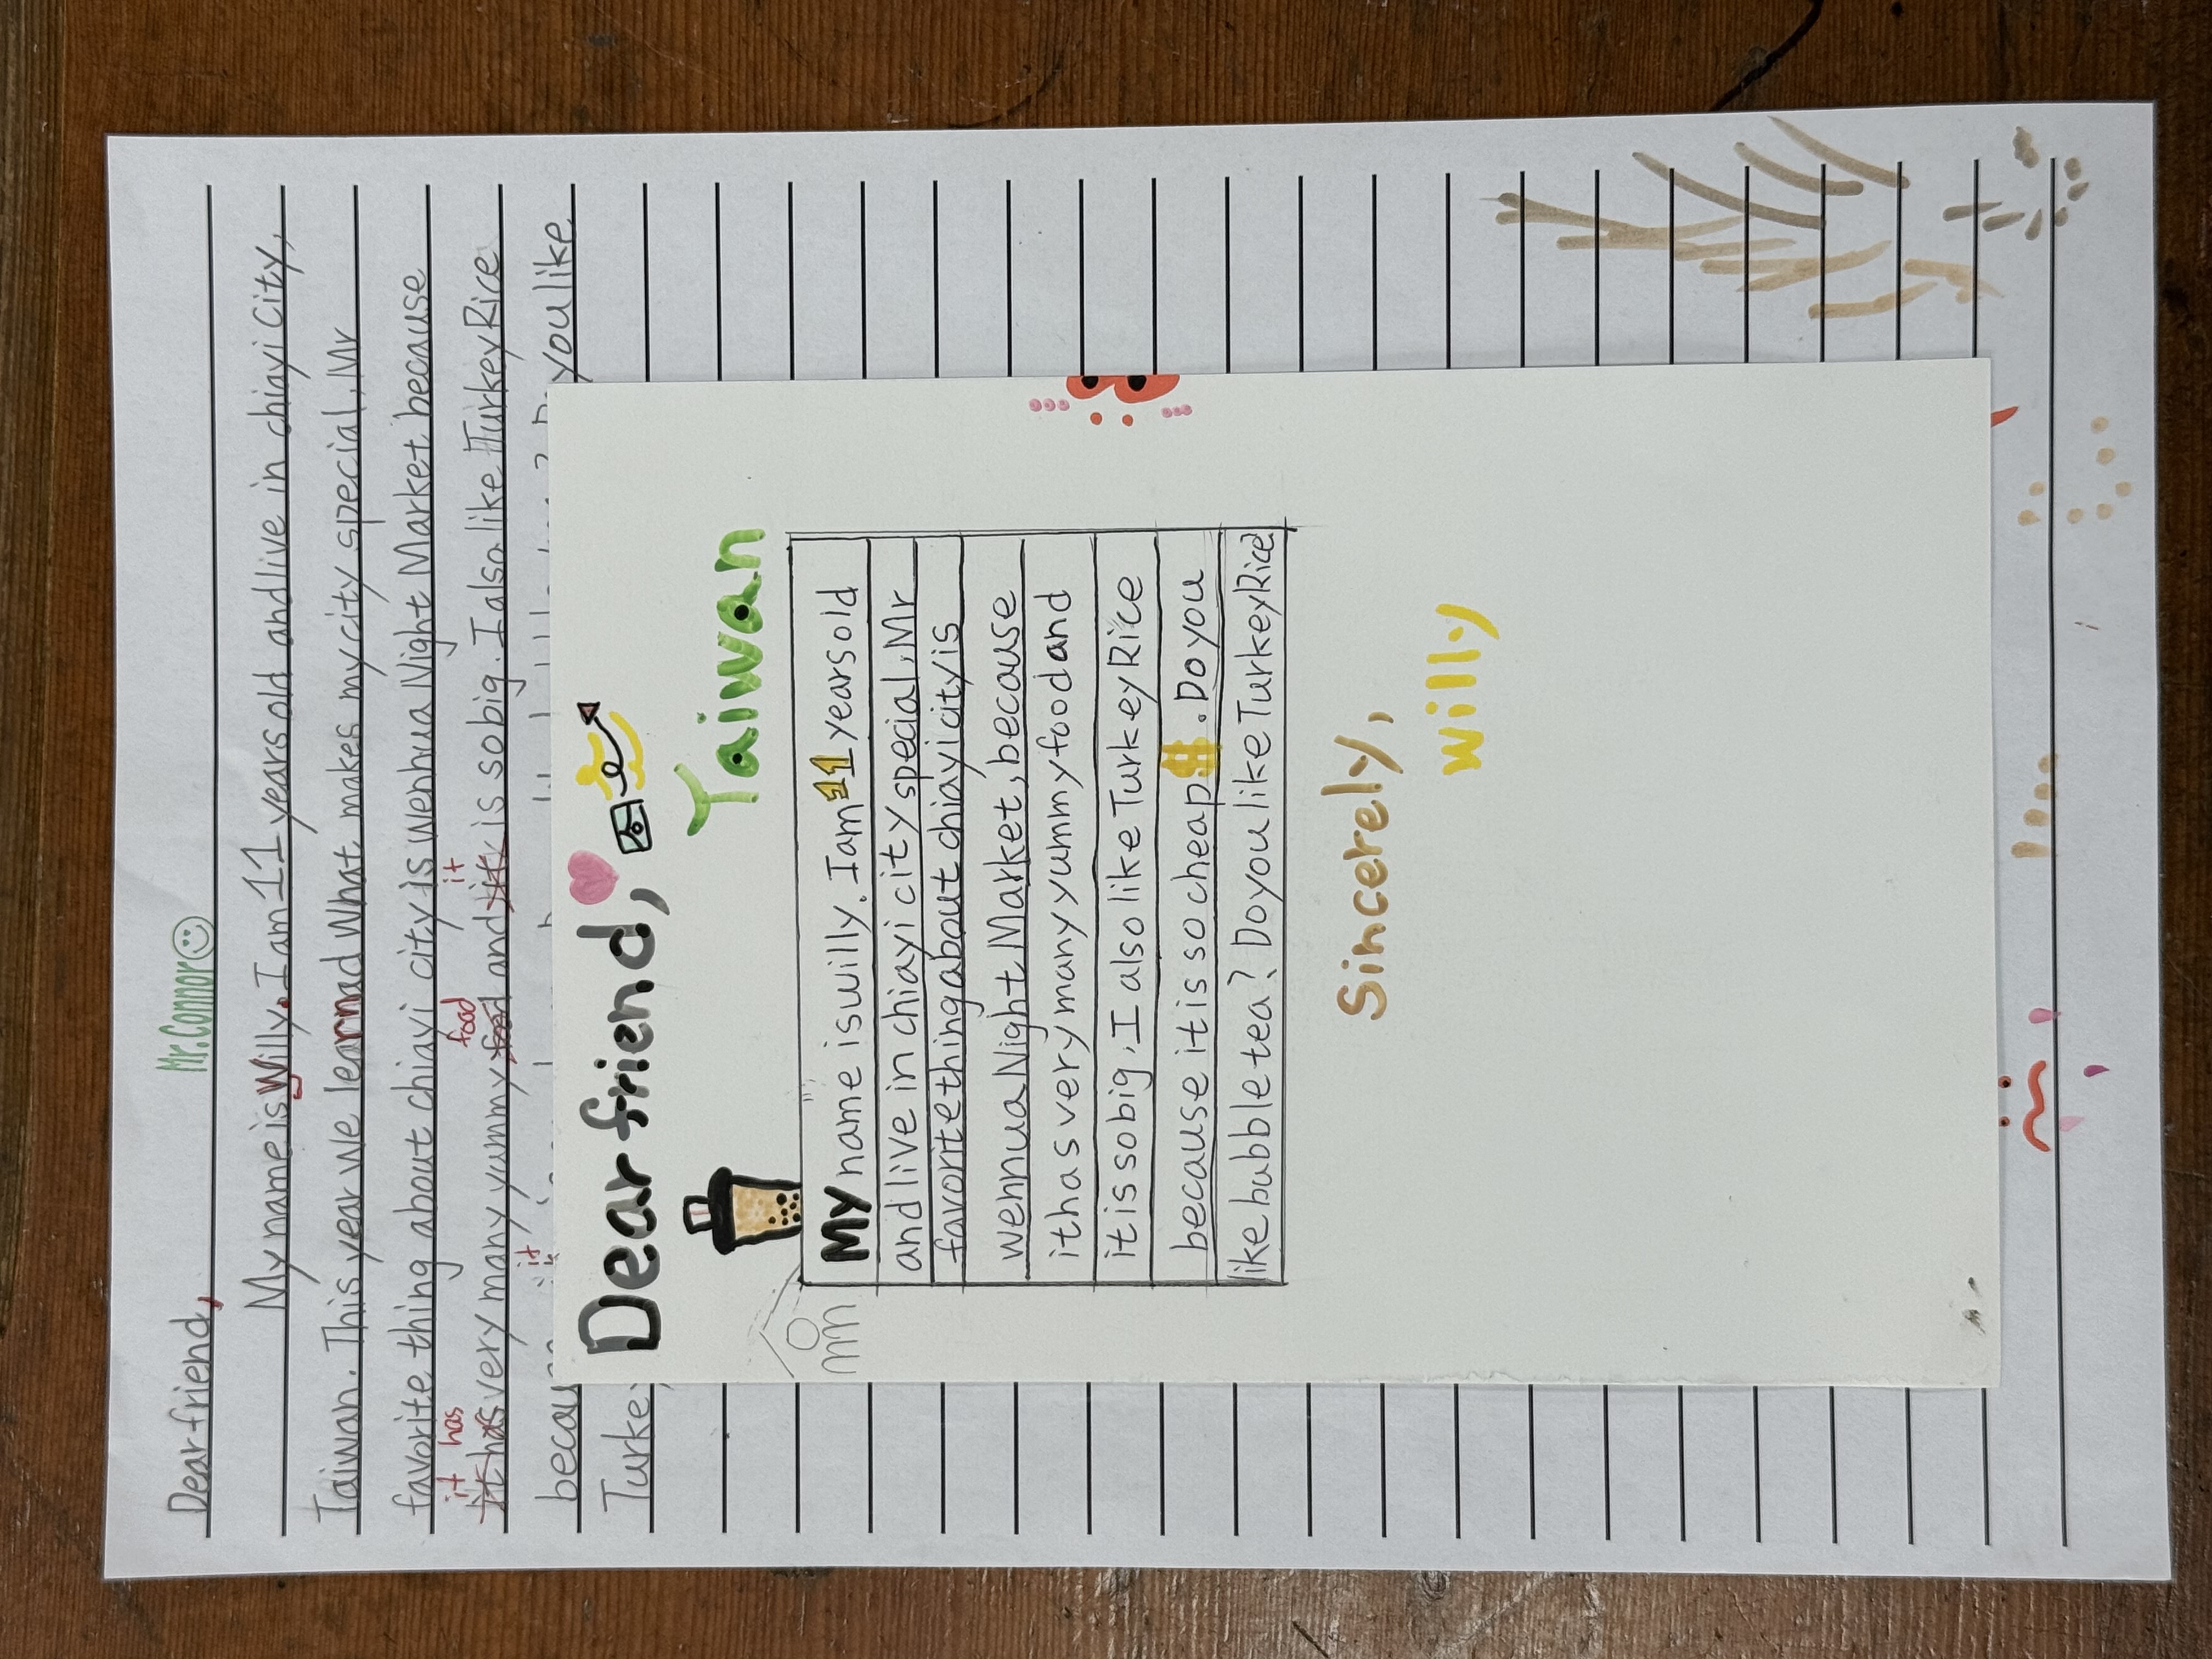 Mr. Connor
Dear friend,
My name is Willy. I am 11 years old and live in chiayi City,
Taiwan. This year we learnad What makes my city special, Mr
favorite thing about chiayi city is wenhua Night Market because
it has food it
it has very many yummy food and it is so big. I also like TurkeyRice
it
becau ? Do you like
Turkey
Dear friend,
Taiwan
My name is willy. I am 11 years old
and live in chiayi city special, Mr
favorite thing about chiayi city is
wenhua Night Market, because
it has very many yummy food and
it is so big, I also like Turkey Rice
because it is so cheap $. Do you
like bubble tea? Do you like Turkey Rice?
Sincerely,
willy